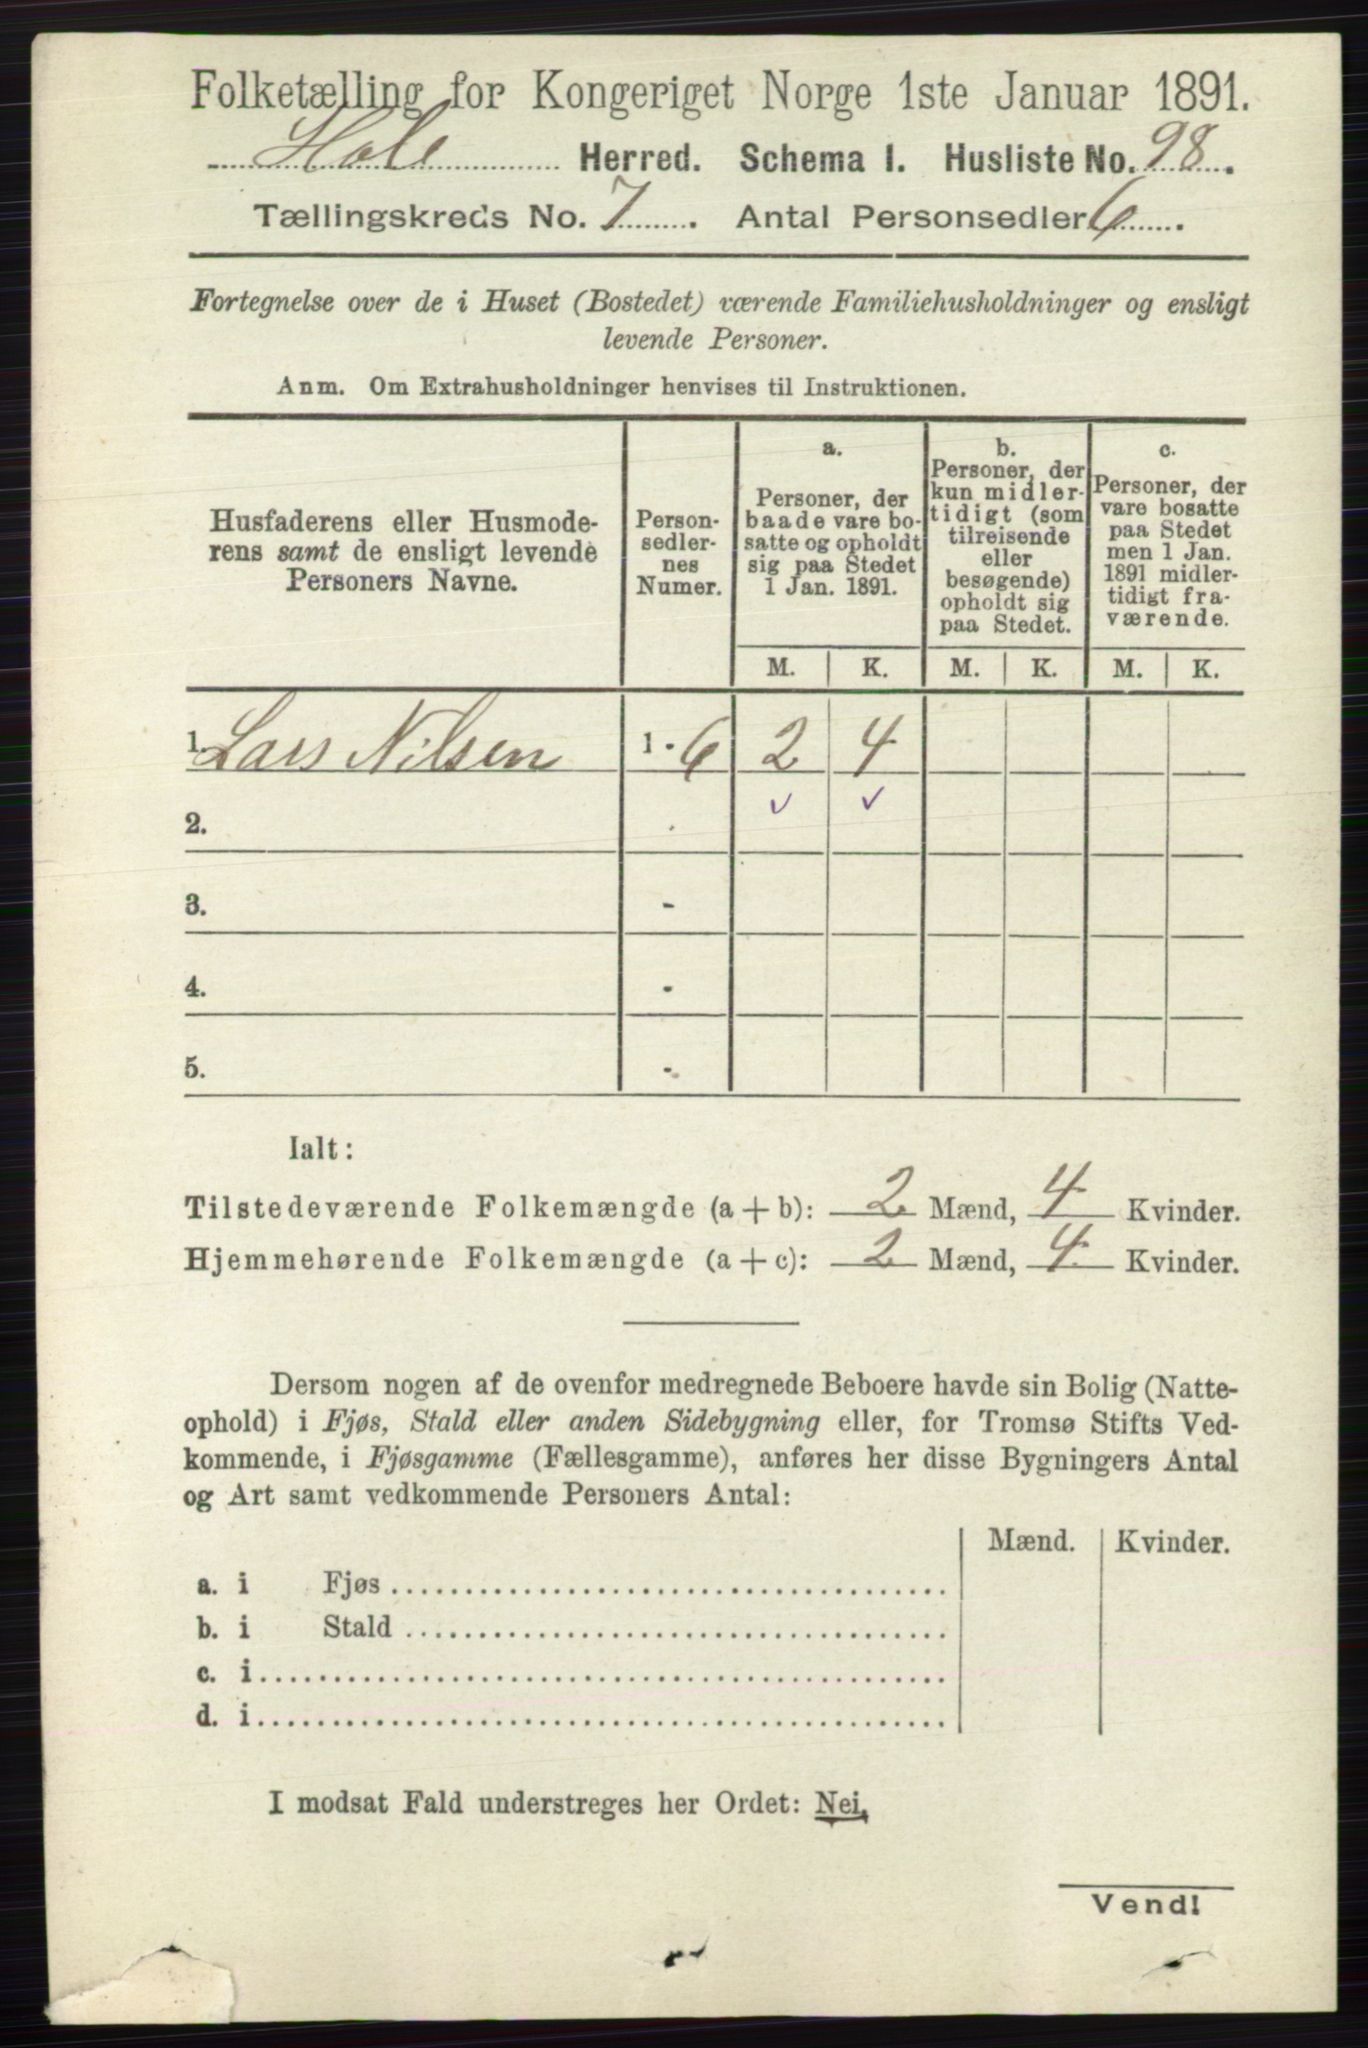 Folketælling for Kongeriget Norge 1ste Januar 1891.
Hole Herred. Schema 1. Husliste No. 98.
Tællingskreds No. 7. Antal Personsedler 6.
Fortegnelse over de i Huset (Bostedet) værende Familiehusholdninger og ensligt
levende Personer.
Anm. Om Extrahusholdninger henvises til Instruktionen.
Husfaderens eller Husmode-
rens samt de ensligt levende
Personers Navne.
Person-
sedler-
nes
Numer.
a.
Personer, der
baade vare bo-
satte og opholdt
sig paa Stedet
1 Jan. 1891.
b.
Personer, der
kun midler-
tidigt (som
tilreisende
eller
besøgende)
opholdt sig
paa Stedet.
c.
Personer, der
vare bosatte
paa Stedet
men 1 Jan.
1891 midler-
tidigt fra-
værende.
M. K. M. K. M. K.
1. Lars Nilsen 1 - 6 2 4
✓ ✓
2. -
3. -
4. -
5. -
Ialt:
Tilstedeværende Folkemængde (a + b): 2 Mænd, 4 Kvinder.
Hjemmehørende Folkemængde (a + c): 2 Mænd, 4 Kvinder.
Dersom nogen af de ovenfor medregnede Beboere havde sin Bolig (Natte-
ophold) i Fjøs, Stald eller anden Sidebygning eller, for Tromsø Stifts Ved-
kommende, i Fjøsgamme (Fællesgamme), anføres her disse Bygningers Antal
og Art samt vedkommende Personers Antal:
Mænd. Kvinder.
a. i Fjøs
b. i Stald
c. i
d. i
I modsat Fald understreges her Ordet: Nei.
Vend!